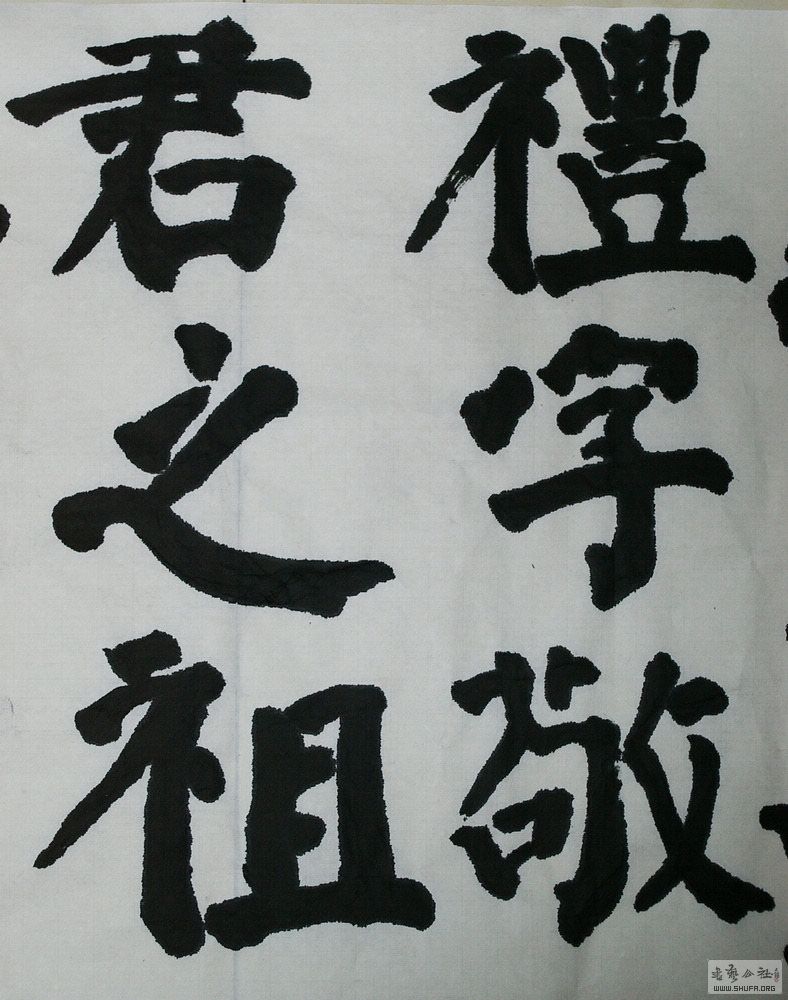 禮字敬
君之祖
書藝公社
WWW.SHUFA.ORG